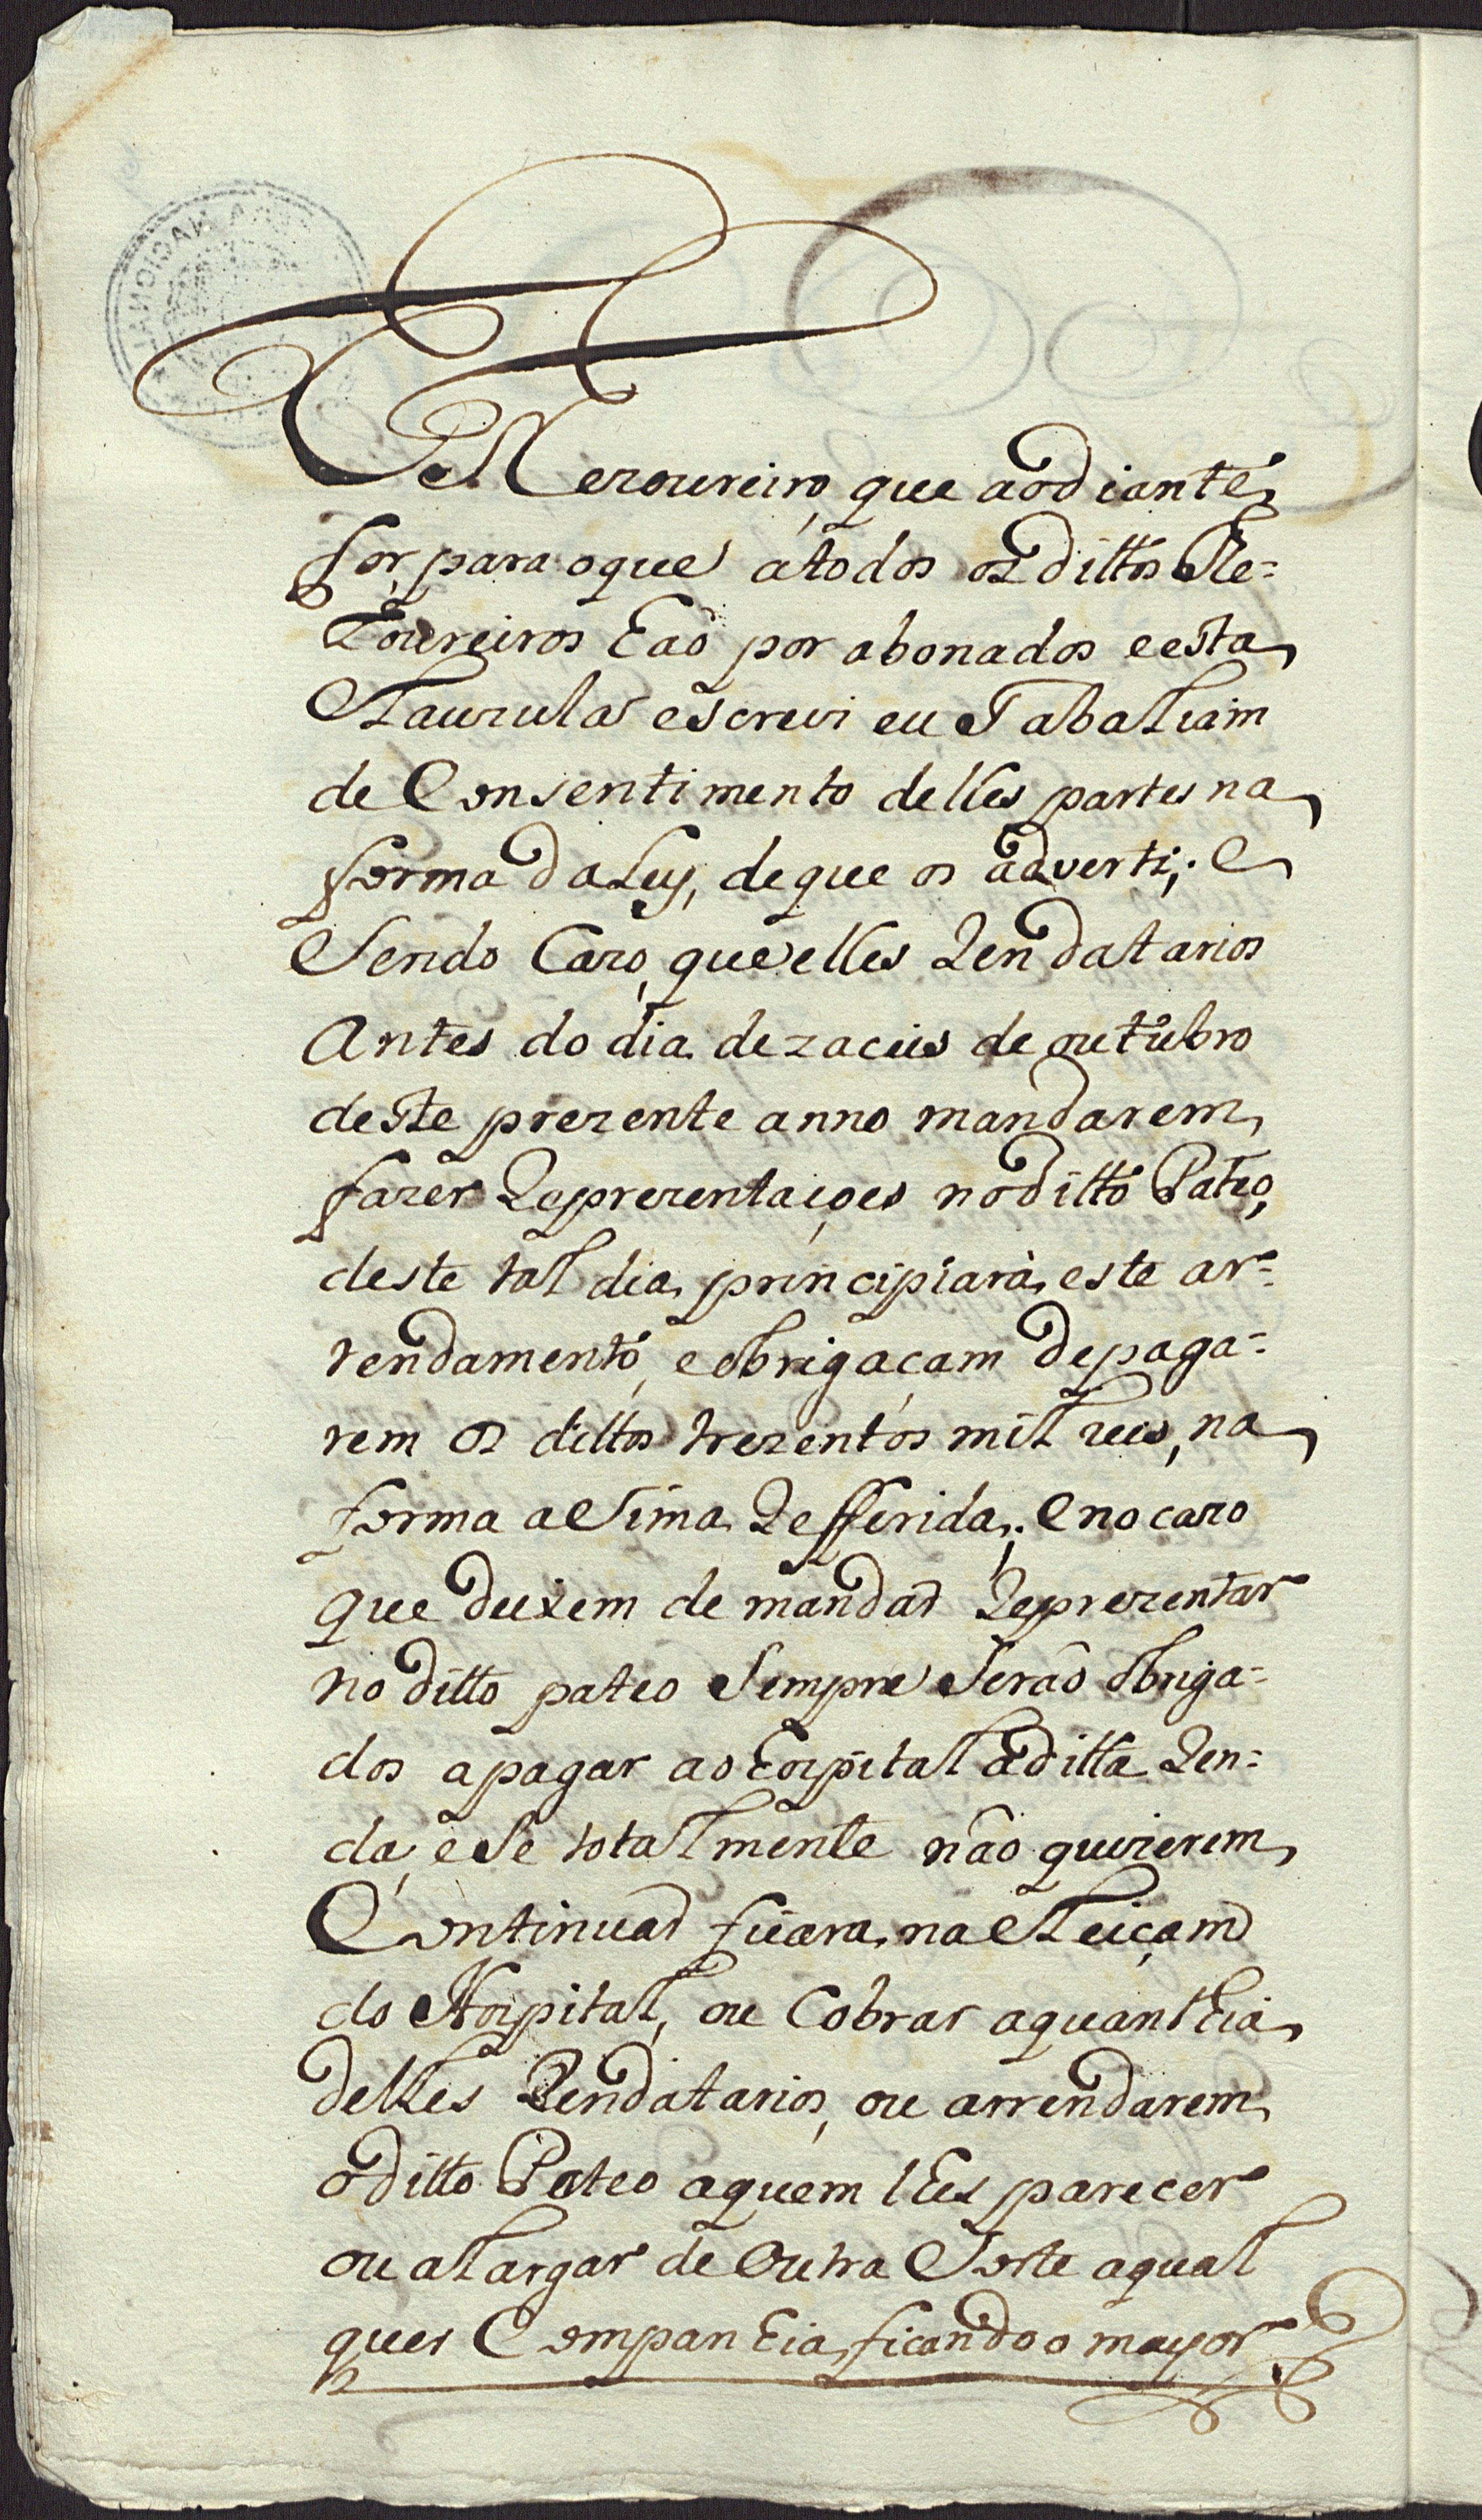 Thezoureiro, que ao diante,
for, para o que a todos os dittos The=
zoureiros hão por abonados e esta
Clauzula escrevi eu Tabaliam
de Consentimento delles partes na
forma da Ley, de que os adverti; e
Sendo Cazo, que elles Rendatarios
Antes do dia dezaceis de outubro
deste prezente anno mandarem
fazer Reprezentaçoes no ditto Pateo,
deste tal dia principiarà este ar=
rendamento, e obrigaçam de paga=
rem os dittos trezentos mil reis, na
forma asima Refferida; e no cazo
que deixem de mandar Reprezentar
no ditto pateo Sempre Serão obriga=
dos a pagar ao hospital a ditta Ren=
da, e Se totalmente não quizerem
Continuar ficara na Eleiçam
do Hospital, ou Cobrar a quanthia
delles Rendatarios, ou arrendarem
o ditto Pateo a quem lhes parecer
ou alargar de Outra Sorte a qual
quer Companhia ficando o mayor